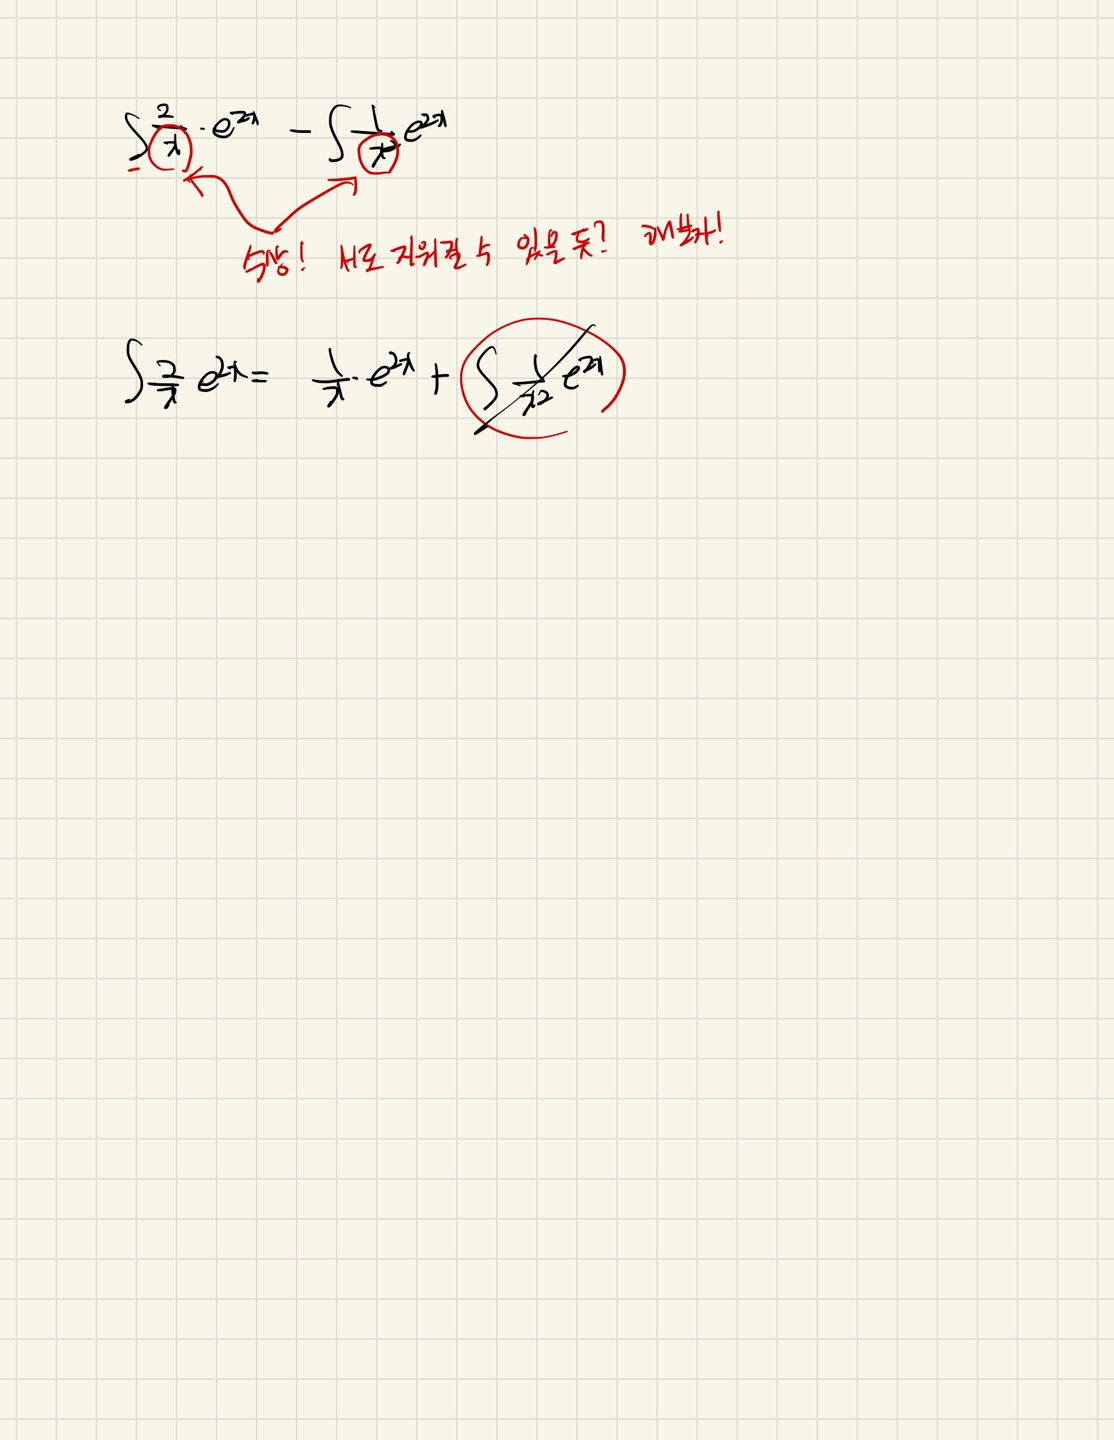 ∫ 2/x · e^{2x} − ∫ 1/x² e^{2x}
수상! 서로 지워질 수 있을 듯? 해보자!
∫ 2/x e^{2x} = 1/x · e^{2x} + ∫ 1/x² e^{2x}